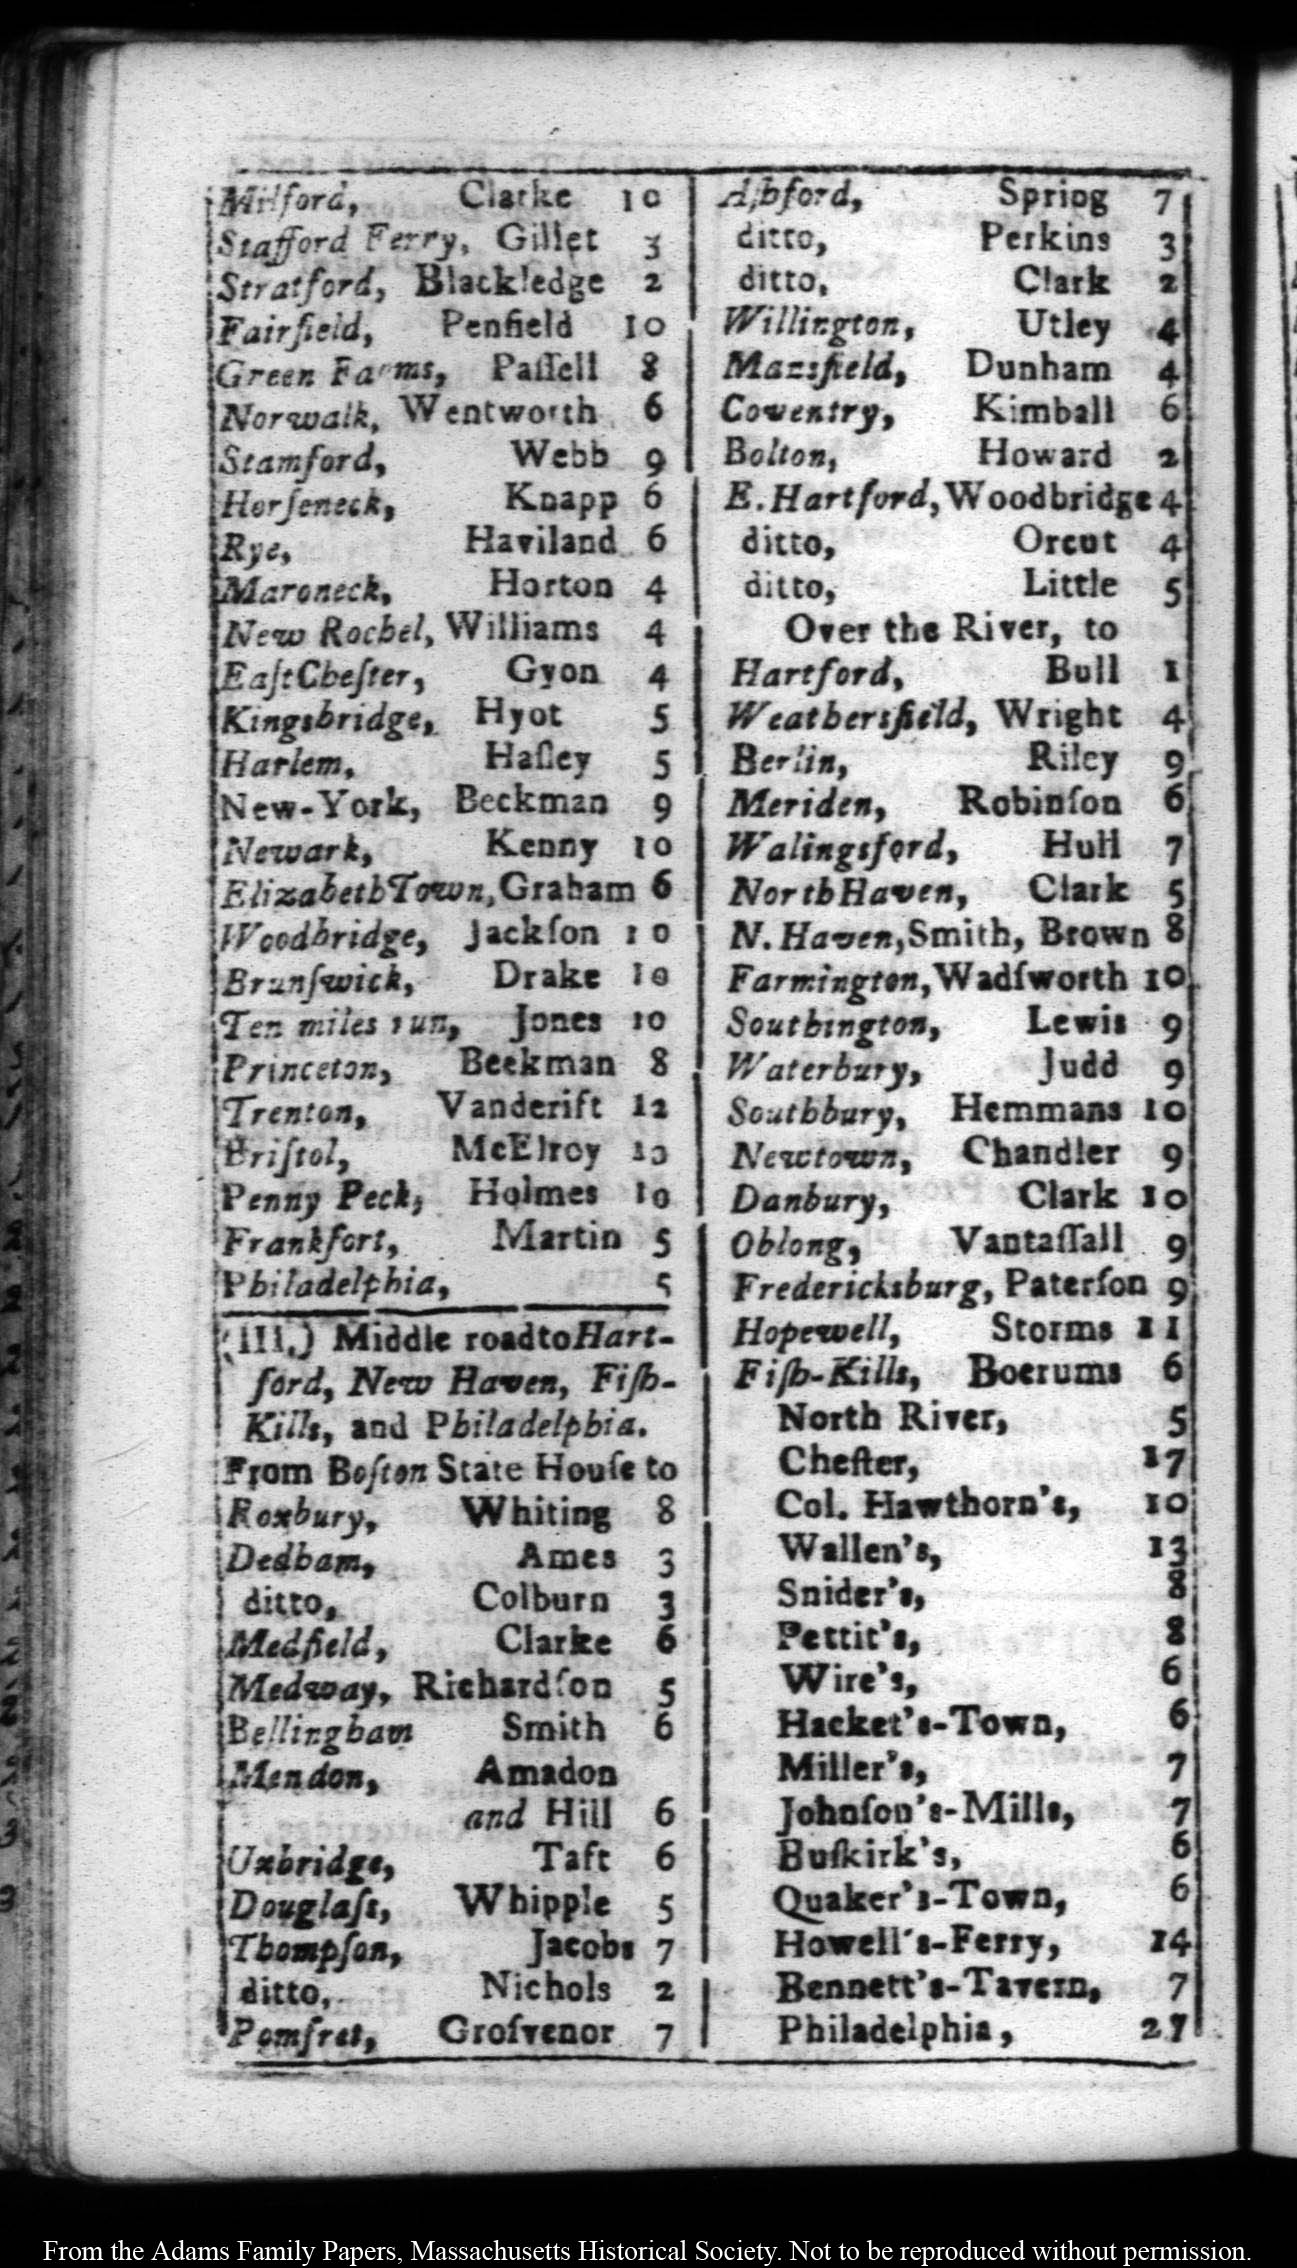 Milford, Clarke 10
Stafford Ferry, Gillet 3
Stratford, Blackledge 2
Fairfield, Penfield 10
Green Farms, Paſſell 8
Norwalk, Wentworth 6
Stamford, Webb 9
Horſeneck, Knapp 6
Rye, Haviland 6
Maroneck, Horton 4
New Rochel, Williams 4
EaſtCheſter, Gyon 4
Kingsbridge, Hyot 5
Harlem, Haſley 5
New-York, Beckman 9
Newark, Kenny 10
ElizabethTown, Graham 6
Woodbridge, Jackſon 10
Brunſwick, Drake 10
Ten miles run, Jones 10
Princeton, Beekman 8
Trenton, Vanderift 12
Briſtol, McElroy 10
Penny Peck, Holmes 10
Frankfort, Martin 5
Philadelphia, 5
(III.) Middle road to Hart-
ford, New Haven, Fiſh-
Kills, and Philadelphia.
From Boſton State Houſe to
Roxbury, Whiting 8
Dedham, Ames 3
ditto, Colburn 3
Medfield, Clarke 6
Medway, Richardſon 5
Bellingham Smith 6
Mendon, Amadon
and Hill 6
Uxbridge, Taft 6
Douglaſs, Whipple 5
Thompſon, Jacobs 7
ditto, Nichols 2
Pomfret, Groſvenor 7
Aſhford, Spring 7
ditto, Perkins 3
ditto, Clark 2
Willington, Utley 4
Mansfield, Dunham 4
Coventry, Kimball 6
Bolton, Howard 2
E. Hartford, Woodbridge 4
ditto, Orcut 4
ditto, Little 5
Over the River, to
Hartford, Bull 1
Weathersfield, Wright 4
Berlin, Riley 9
Meriden, Robinſon 6
Walingsford, Hull 7
NorthHaven, Clark 5
N. Haven, Smith, Brown 8
Farmington, Wadſworth 10
Southington, Lewis 9
Waterbury, Judd 9
Southbury, Hemmans 10
Newtown, Chandler 9
Danbury, Clark 10
Oblong, Vantaſſall 9
Fredericksburg, Paterſon 9
Hopewell, Storms 11
Fiſh-Kills, Boerums 6
North River, 5
Cheſter, 17
Col. Hawthorn's, 10
Wallen's, 13
Snider's, 8
Pettit's, 8
Wire's, 6
Hacket's-Town, 6
Miller's, 7
Johnſon's-Mills, 7
Buſkirk's, 6
Quaker's-Town, 6
Howell's-Ferry, 14
Bennett's-Tavern, 7
Philadelphia, 27
From the Adams Family Papers, Massachusetts Historical Society. Not to be reproduced without permission.